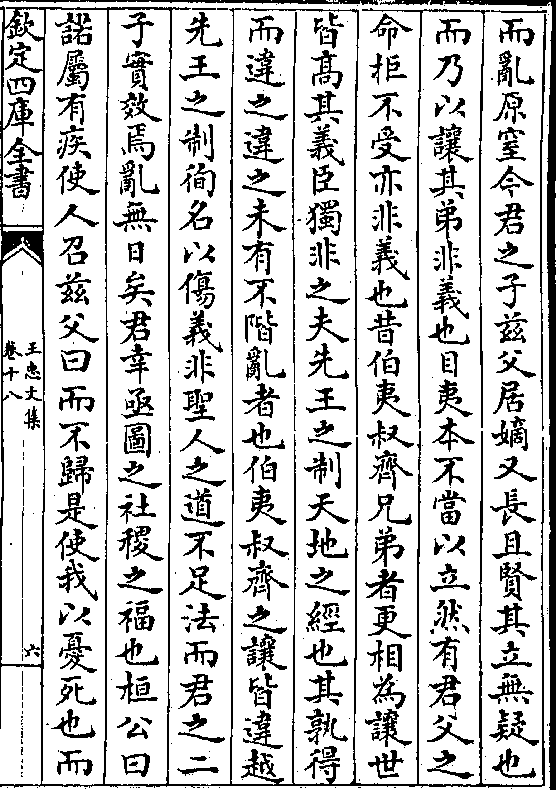 而亂原窒今君之子兹父居嫡又長且賢其立無疑也
而乃以讓其弟非義也目夷本不當以立然有君父之
命拒不受亦非義也昔伯夷叔齊兄弟者更相為讓世
皆高其義臣獨非之夫先王之制天地之經也其孰得
而違之違之未有不階亂者也伯夷叔齊之讓皆違越
先王之制徇名以傷義非聖人之道不足法而君之二
子實效焉亂無日矣君幸亟圖之社稷之福也桓公曰
諾屬有疾使人召兹父曰而不歸是使我以憂死也而
欽定四庫全書
王忠文集
卷十八
六